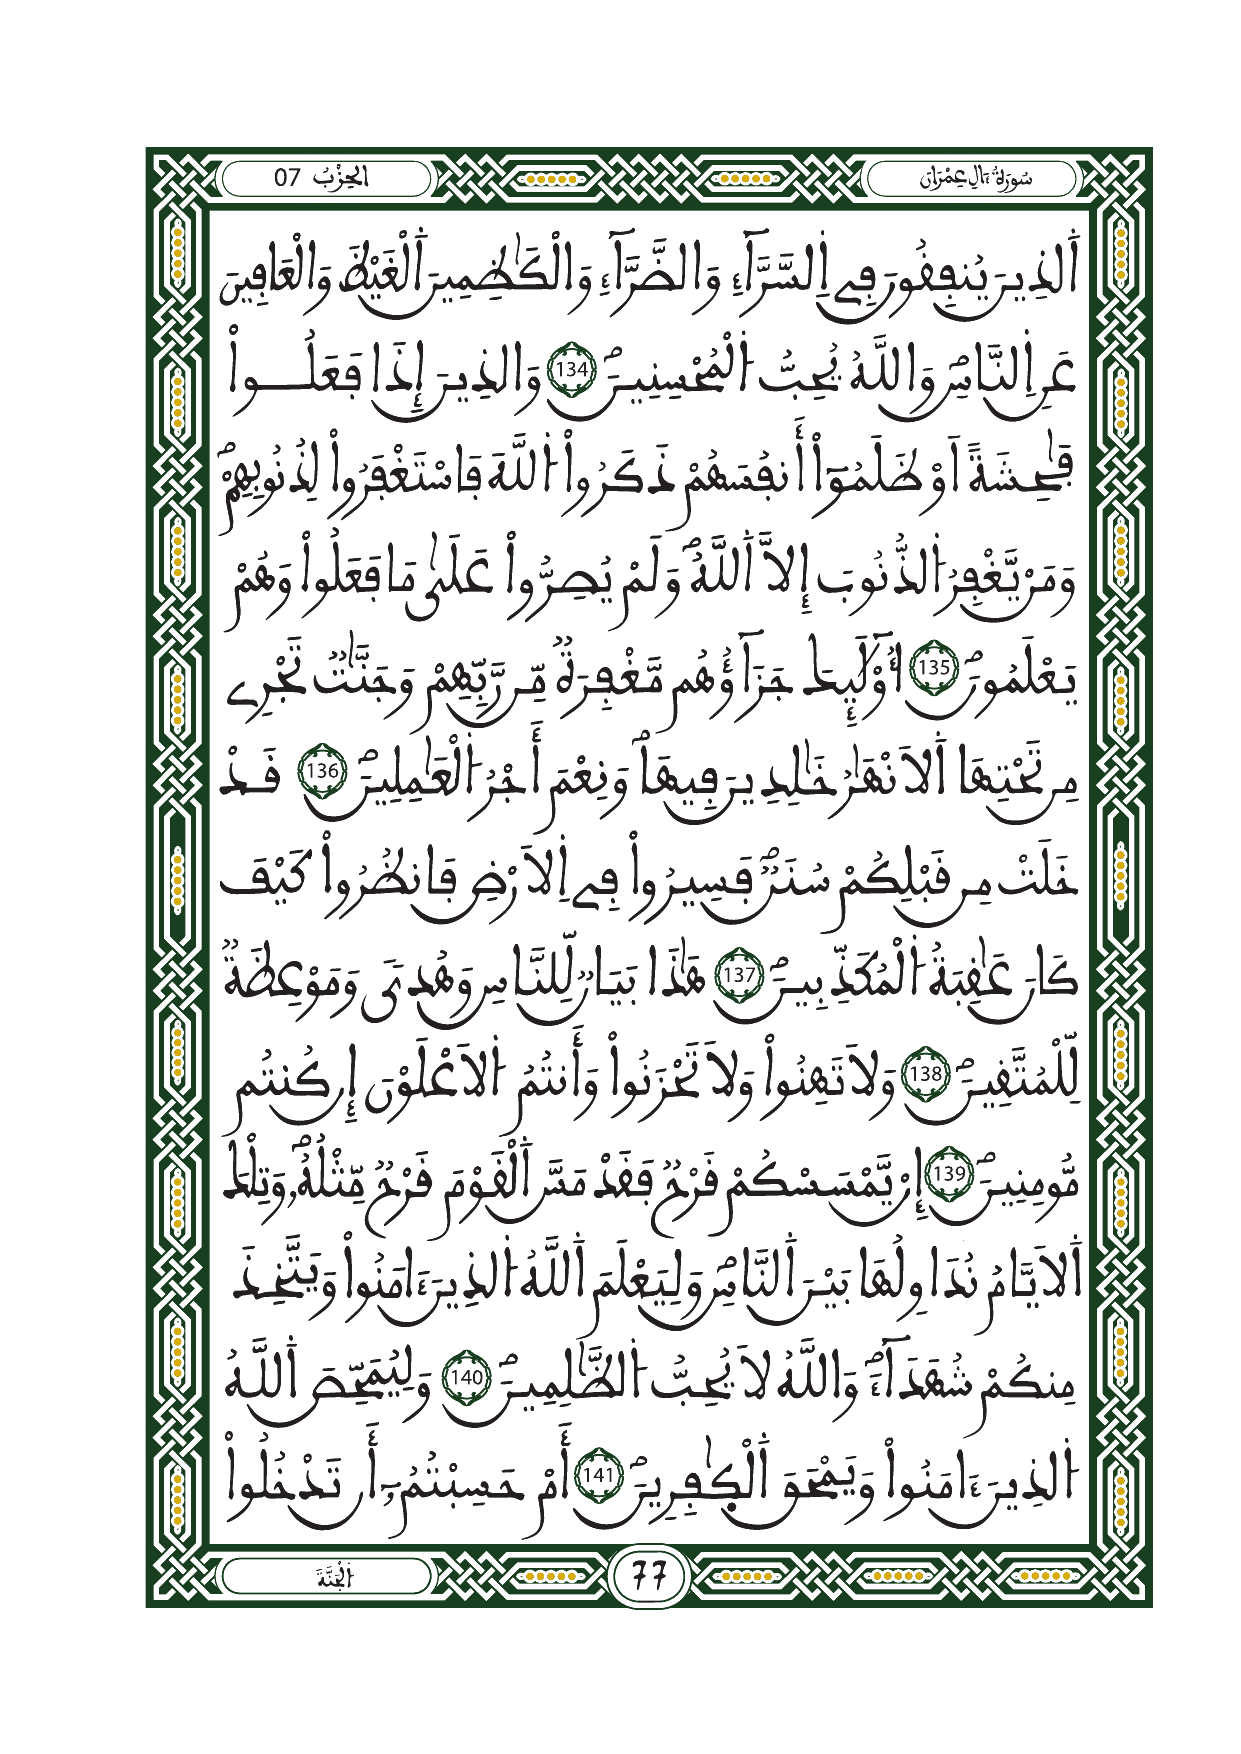 سُورَةُ ءَالِ عِمْرَانَ
الحِزْبُ 07
اَ۬لذِينَ يُنفِقُونَ فِے اِ۬لسَّرَّآءِ وَالضَّرَّآءِ وَالْكَٰظِمِينَ اَ۬لْغَيْظَ وَالْعَافِينَ
عَنِ اِ۬لنَّاسِۖ وَاللَّهُ يُحِبُّ اُ۬لْمُحْسِنِينَۖ 134 وَالذِينَ إِذَا فَعَلُواْ
فَٰحِشَةً اَوْ ظَلَمُوٓاْ أَنفُسَهُمْ ذَكَرُواْ اُ۬للَّهَ فَاسْتَغْفَرُواْ لِذُنُوبِهِمْۖ
وَمَنْ يَّغْفِرُ اُ۬لذُّنُوبَ إِلَّا اَ۬للَّهُۖ وَلَمْ يُصِرُّواْ عَلَىٰ مَا فَعَلُواْ وَهُمْ
يَعْلَمُونَۖ 135 أُوْلَٰٓئِكَ جَزَآؤُهُم مَّغْفِرَةٞ مِّن رَّبِّهِمْ وَجَنَّٰتٞ تَجْرِے
مِن تَحْتِهَا اَ۬لَانْهَٰرُ خَٰلِدِينَ فِيهَاۖ وَنِعْمَ أَجْرُ اُ۬لْعَٰمِلِينَۖ 136 قَدْ
خَلَتْ مِن قَبْلِكُمْ سُنَنٞۖ فَسِيرُواْ فِے اِ۬لَارْضِ فَانظُرُواْ كَيْفَ
كَانَ عَٰقِبَةُ اُ۬لْمُكَذِّبِينَۖ 137 هَٰذَا بَيَانٞ لِّلنَّاسِ وَهُدىٗ وَمَوْعِظَةٞ
لِّلْمُتَّقِينَۖ 138 وَلَا تَهِنُواْ وَلَا تَحْزَنُواْ وَأَنتُمُ اُ۬لَاعْلَوْنَ إِن كُنتُم
مُّومِنِينَۖ 139 إِنْ يَّمْسَسْكُمْ قَرْحٞ فَقَدْ مَسَّ اَ۬لْقَوْمَ قَرْحٞ مِّثْلُهُۥۖ وَتِلْكَ
اَ۬لَايَّامُ نُدَاوِلُهَا بَيْنَ اَ۬لنَّاسِۖ وَلِيَعْلَمَ اَ۬للَّهُ اُ۬لذِينَ ءَامَنُواْ وَيَتَّخِذَ
مِنكُمْ شُهَدَآءَۖ وَاللَّهُ لَا يُحِبُّ اُ۬لظَّٰلِمِينَۖ 140 وَلِيُمَحِّصَ اَ۬للَّهُ
اُ۬لذِينَ ءَامَنُواْ وَيَمْحَقَ اَ۬لْكٰ۪فِرِينَۖ 141 أَمْ حَسِبْتُمُۥٓ أَن تَدْخُلُواْ
77
اُ۬لْجَنَّةَ